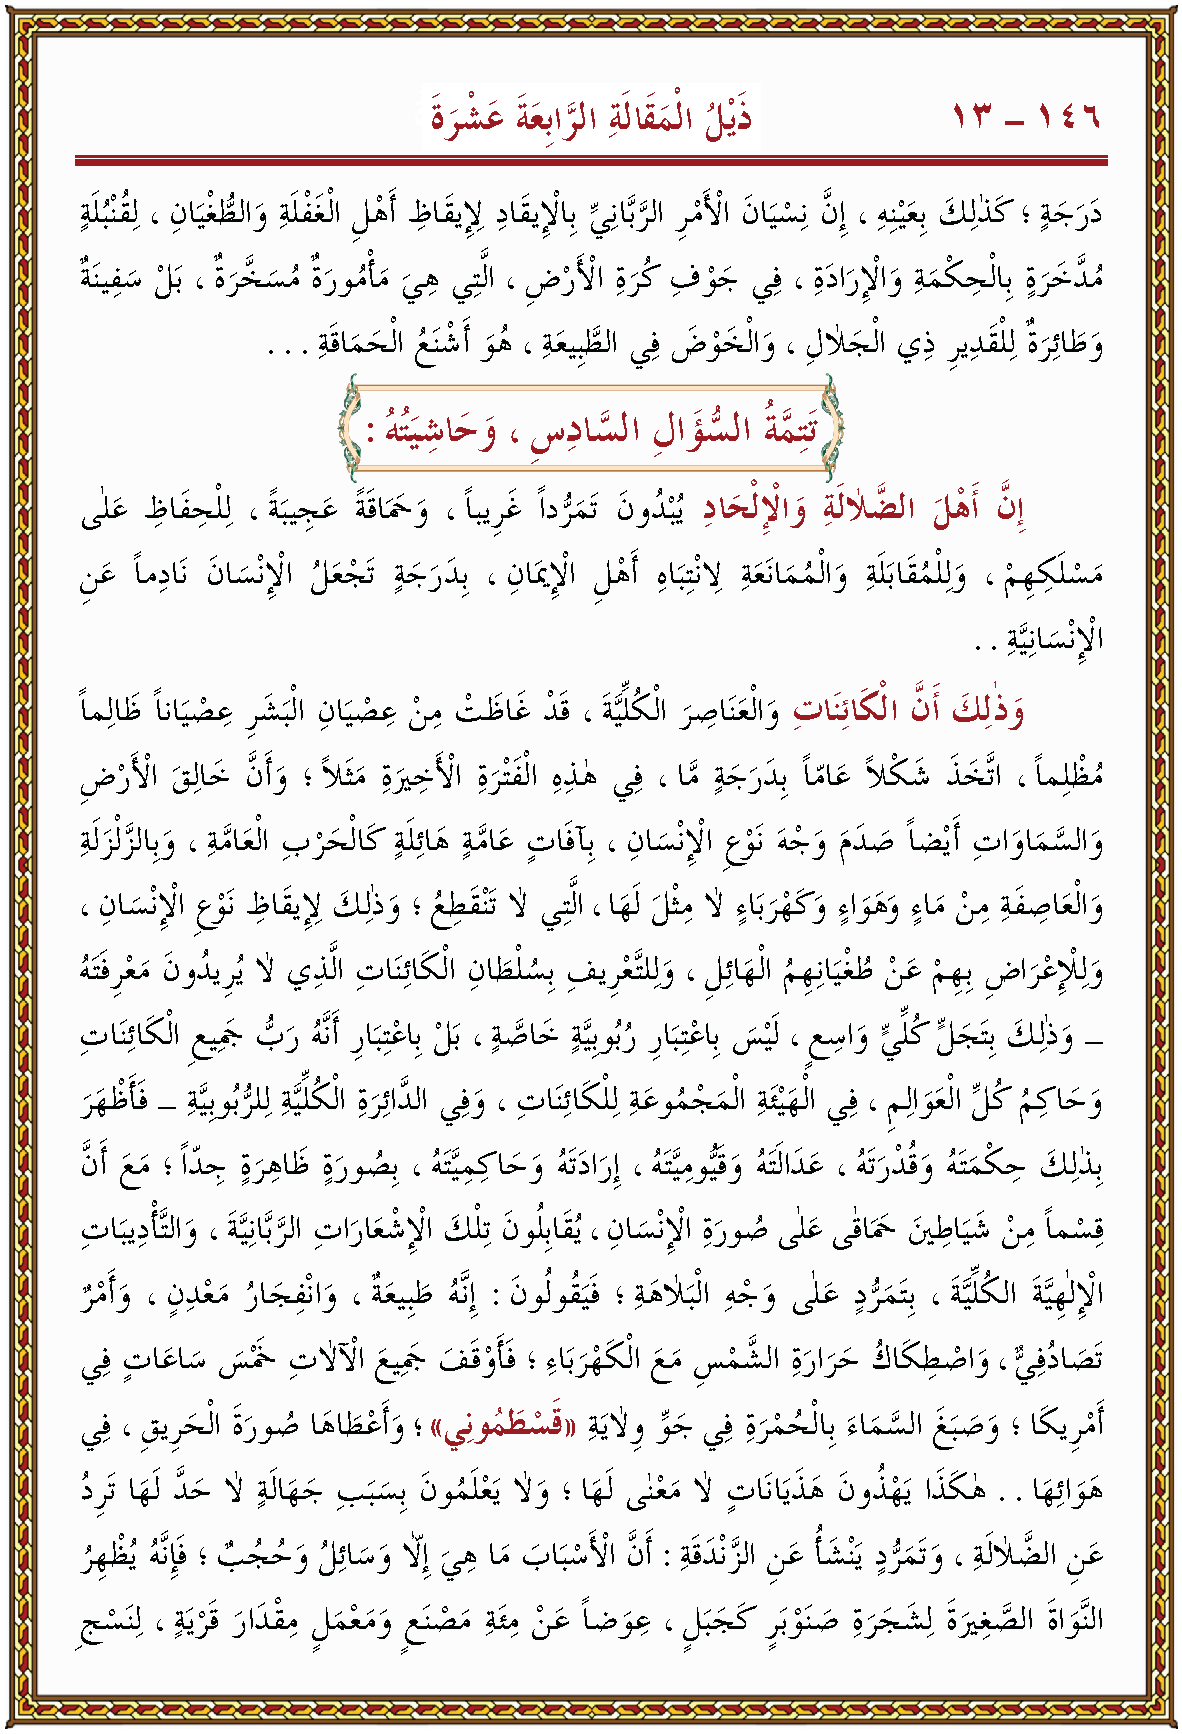 ١٤٦ – ١٣ ذَيْلُ الْمَقَالَةِ الرَّابِعَةَ عَشْرَةَ
دَرَجَةٍ ؛ كَذٰلِكَ بِعَيْنِهِ ، إِنَّ نِسْيَانَ الْأَمْرِ الرَّبَّانِيِّ بِالْإِيقَادِ لِإِيقَاظِ أَهْلِ الْغَفْلَةِ وَالطُّغْيَانِ ، لِقُنْبُلَةٍ
مُدَّخَرَةٍ بِالْحِكْمَةِ وَالْإِرَادَةِ ، فِي جَوْفِ كُرَةِ الْأَرْضِ ، الَّتِي هِيَ مَأْمُورَةٌ مُسَخَّرَةٌ ، بَلْ سَفِينَةٌ
وَطَائِرَةٌ لِلْقَدِيرِ ذِي الْجَلَالِ ، وَالْخَوْضَ فِي الطَّبِيعَةِ ، هُوَ أَشْنَعُ الْحَمَاقَةِ . . .
تَتِمَّةُ السُّؤَالِ السَّادِسِ ، وَحَاشِيَتُهُ :
إِنَّ أَهْلَ الضَّلَالَةِ وَالْإِلْحَادِ يُبْدُونَ تَمَرُّداً غَرِيباً ، وَحَمَاقَةً عَجِيبَةً ، لِلْحِفَاظِ عَلٰى
مَسْلَكِهِمْ ، وَلِلْمُقَابَلَةِ وَالْمُمَانَعَةِ لِانْتِبَاهِ أَهْلِ الْإِيمَانِ ، بِدَرَجَةٍ تَجْعَلُ الْإِنْسَانَ نَادِماً عَنِ
الْإِنْسَانِيَّةِ . .
وَذٰلِكَ أَنَّ الْكَائِنَاتِ وَالْعَنَاصِرَ الْكُلِّيَّةَ ، قَدْ غَاظَتْ مِنْ عِصْيَانِ الْبَشَرِ عِصْيَاناً ظَالِماً
مُظْلِماً ، اتَّخَذَ شَكْلاً عَامّاً بِدَرَجَةٍ مَّا ، فِي هٰذِهِ الْفَتْرَةِ الْأَخِيرَةِ مَثَلاً ؛ وَأَنَّ خَالِقَ الْأَرْضِ
وَالسَّمَاوَاتِ أَيْضاً صَدَمَ وَجْهَ نَوْعِ الْإِنْسَانِ ، بِآفَاتٍ عَامَّةٍ هَائِلَةٍ كَالْحَرْبِ الْعَامَّةِ ، وَبِالزَّلْزَلَةِ
وَالْعَاصِفَةِ مِنْ مَاءٍ وَهَوَاءٍ وَكَهْرَبَاءٍ لَا مِثْلَ لَهَا ، الَّتِي لَا تَنْقَطِعُ ؛ وَذٰلِكَ لِإِيقَاظِ نَوْعِ الْإِنْسَانِ ،
وَلِلْإِعْرَاضِ بِهِمْ عَنْ طُغْيَانِهِمُ الْهَائِلِ ، وَلِلتَّعْرِيفِ بِسُلْطَانِ الْكَائِنَاتِ الَّذِي لَا يُرِيدُونَ مَعْرِفَتَهُ
– وَذٰلِكَ بِتَجَلٍّ كُلِّيٍّ وَاسِعٍ ، لَيْسَ بِاعْتِبَارِ رُبُوبِيَّةٍ خَاصَّةٍ ، بَلْ بِاعْتِبَارِ أَنَّهُ رَبُّ جَمِيعِ الْكَائِنَاتِ
وَحَاكِمُ كُلِّ الْعَوَالِمِ ، فِي الْهَيْئَةِ الْمَجْمُوعَةِ لِلْكَائِنَاتِ ، وَفِي الدَّائِرَةِ الْكُلِّيَّةِ لِلرُّبُوبِيَّةِ – فَأَظْهَرَ
بِذٰلِكَ حِكْمَتَهُ وَقُدْرَتَهُ ، عَدَالَتَهُ وَقَيُّومِيَّتَهُ ، إِرَادَتَهُ وَحَاكِمِيَّتَهُ ، بِصُورَةٍ ظَاهِرَةٍ جِدّاً ؛ مَعَ أَنَّ
قِسْماً مِنْ شَيَاطِينَ حَمَاقٰى عَلٰى صُورَةِ الْإِنْسَانِ ، يُقَابِلُونَ تِلْكَ الْإِشْعَارَاتِ الرَّبَّانِيَّةَ ، وَالتَّأْدِيبَاتِ
الْإِلٰهِيَّةَ الْكُلِّيَّةَ ، بِتَمَرُّدٍ عَلٰى وَجْهِ الْبَلَاهَةِ ؛ فَيَقُولُونَ : إِنَّهُ طَبِيعَةٌ ، وَانْفِجَارُ مَعْدَنٍ ، وَأَمْرٌ
تَصَادُفِيٌّ ، وَاصْطِكَاكُ حَرَارَةِ الشَّمْسِ مَعَ الْكَهْرَبَاءِ ؛ فَأَوْقَفَ جَمِيعَ الْآلَاتِ خَمْسَ سَاعَاتٍ فِي
أَمْرِيكَا ؛ وَصَبَغَ السَّمَاءَ بِالْحُمْرَةِ فِي جَوِّ وِلَايَةِ «قَسْطَمُونِي» ؛ وَأَعْطَاهَا صُورَةَ الْحَرِيقِ ، فِي
هَوَائِهَا . . هٰكَذَا يَهْذُونَ هَذَيَانَاتٍ لَا مَعْنٰى لَهَا ؛ وَلَا يَعْلَمُونَ بِسَبَبِ جَهَالَةٍ لَا حَدَّ لَهَا تَرِدُ
عَنِ الضَّلَالَةِ ، وَتَمَرُّدٍ يَنْشَأُ عَنِ الزَّنْدَقَةِ : أَنَّ الْأَسْبَابَ مَا هِيَ إِلَّا وَسَائِلُ وَحُجُبٌ ؛ فَإِنَّهُ يُظْهِرُ
النَّوَاةَ الصَّغِيرَةَ لِشَجَرَةِ صَنَوْبَرٍ كَجَبَلٍ ، عِوَضاً عَنْ مِئَةِ مَصْنَعٍ وَمَعْمَلٍ مِقْدَارَ قَرْيَةٍ ، لِنَسْجِ